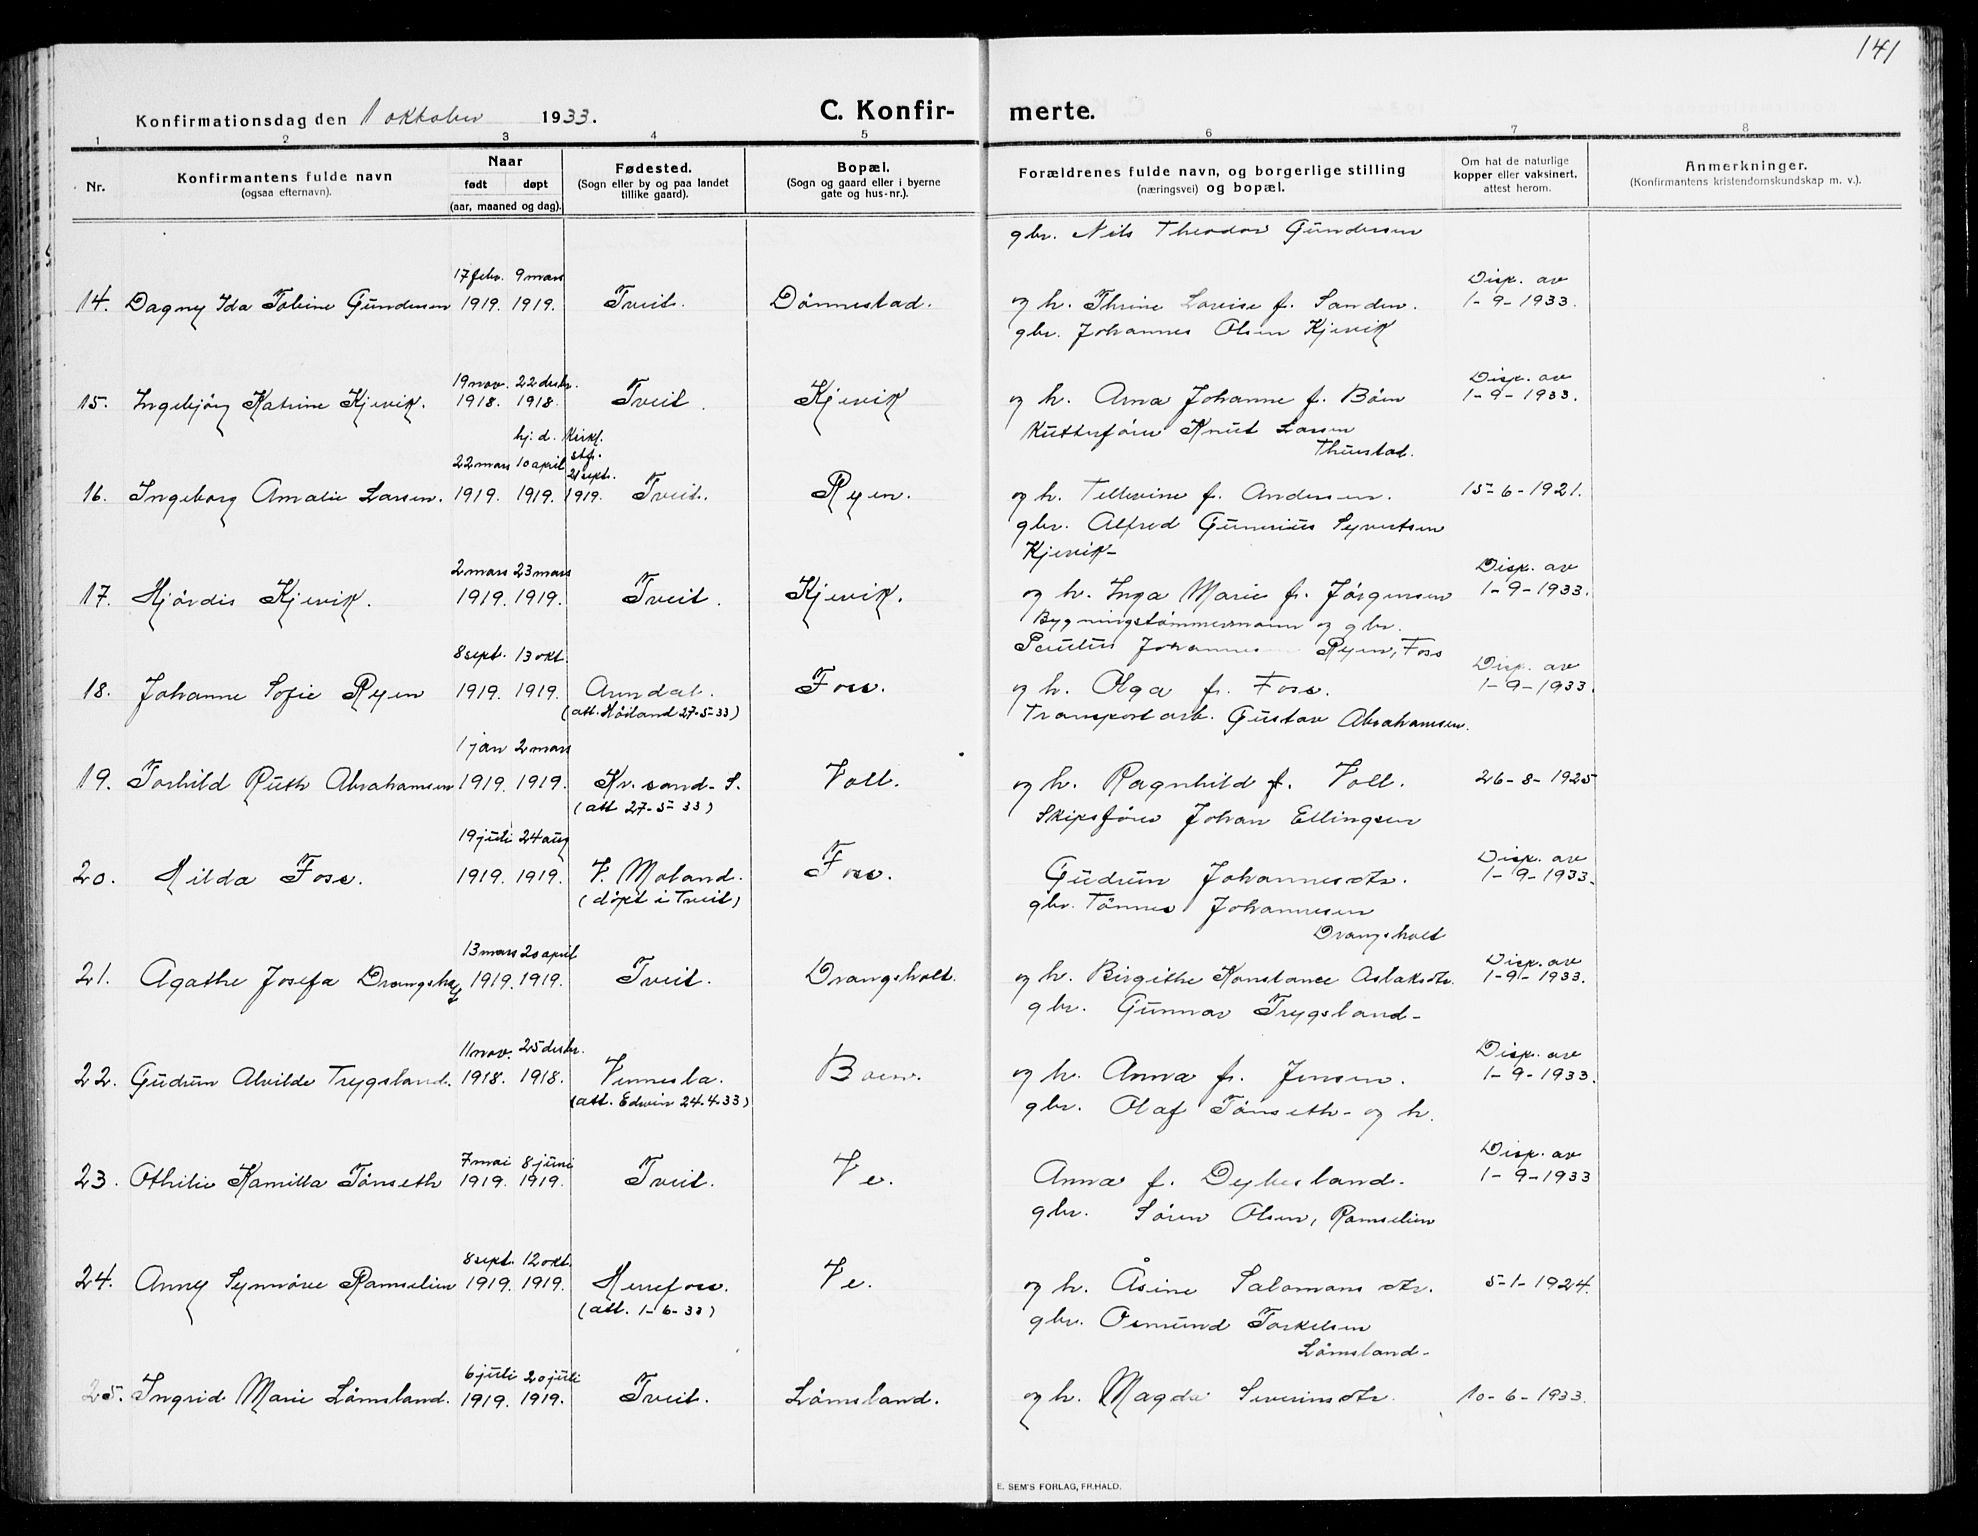 141
Konfirmationsdag den 1 oktober 1933.
C. Konfirmerte.
1 2 3 4 5 6 7 8
Nr.
Konfirmantens fulde navn
(ogsaa efternavn).
Naar
født døpt
(aar, maaned og dag).
Fødested.
(Sogn eller by og paa landet
tillike gaard).
Bopæl.
(Sogn og gaard eller i byerne
gate og hus-nr.).
Forældrenes fulde navn, og borgerlige stilling
(næringsvei) og bopæl.
Om hat de naturlige
kopper eller vaksinert,
attest herom.
Anmerkninger.
(Konfirmantens kristendomskundskap m. v.).
gbr. Nils Theodor Gundersen
17 febr. 9 mars Disp. av
14. Dagny Ida Tobine Gundersen 1919. 1919. Tveit. Dønnestad. og h. Thrine Lovise f. Sanden. 1-9-1933.
gbr. Johannes Olsen Kjevik
19 nov. 22 desbr. Disp. av
15. Ingebjørg Katrine Kjevik. 1918. 1918. Tveit. Kjevik og h. Anna Johanne f. Bøen 1-9-1933.
hj. d. Kirkl. Kutterfører Knut Larsen
stf. Thustad.
22 mars 10 april 21 sept.
16. Ingeborg Amalie Larsen. 1919. 1919. 1919. Tveit. Ryen. og h. Tellevine f. Andersen. 15-6-1921.
gbr. Alfred Gunerius Syvertsen
Kjevik-
2 mars 23 mars Disp. av
17. Hjørdis Kjevik. 1919. 1919. Tveit. Kjevik. og h. Inga Marie f. Jørgensen 1-9-1933.
Bygningstømmermann og gbr.
8 sept. 13 okt. Paulus Johannes Ryen, Foss Disp. av
18. Johanne Sofie Ryen 1919. 1919. Arendal. Foss. og h. Olga f. Foss. 1-9-1933.
(att. Høiland 27-5-33) Transportarb. Gustav Abrahamsen.
1 jan 2 mars
19. Torhild Ruth Abrahamsen 1919. 1919. Kr. sand-S. Voll. og h. Ragnhild f. Voll. 26-8-1925
(att 27-5-33) Skipsfører Johan Ellingsen
19 juli 24 aug Disp. av
20. Hilda Foss. 1919. 1919. V. Moland. Foss. Gudrun Johannesdtr. 1-9-1933.
(døpt i Tveit) gbr. Tønnes Johannesen
Drangsholt
13 mars 20 april Disp. av
21. Agathe Josefa Drangsholt 1919. 1919. Tveit. Drangsholt. og h. Birgithe Konstance Aslaksdtr. 1-9-1933.
gbr. Gunnar Trygsland-
11 nov. 25 desbr. Disp. av
22. Gudrun Alvilde Trygsland. 1918. 1918. Vennesla. Boen. og h. Anna f. Jensen. 1-9-1933.
(att. Edwin 24-4-33) gbr. Olaf Tønseth- og h.
7 mai 8 juni Disp. av
23. Othilie Kamilla Tønseth 1919. 1919. Tveit. Ve. Anna f. Dybesland. 1-9-1933
gbr. Søren Olsen, Ramselien
8 sept. 12 okt.
24. Anny Synnøve Ramselien 1919. 1919. Herefoss. Ve. og h. Åsine Salomons dtr. 5-1-1924.
(att. 1-6-33) gbr. Osmund Torkelsen
Lømsland-
6 juli 20 juli
25. Ingrid Marie Lømsland. 1919. 1919. Tveit. Lømsland. og h. Magda Severinsdtr. 10-6-1933.
E. SEM'S FORLAG, FR.HALD.